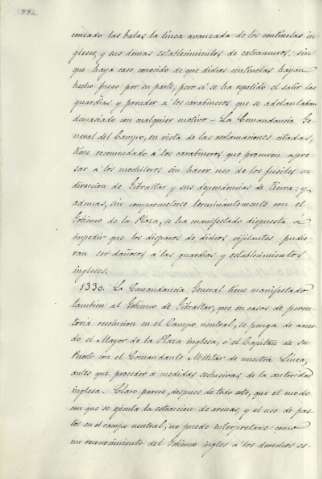 882
canzado las balas la linea avanzada de los centinelas in
gleses, y sus demas establecimientos de extramuros, sin
que haya caso conocido de que dichos centinelas hayan
hecho fuego por su parte, pero sí se ha repetido el salir las
guardias y prender á los carabineros que se adelantaban
demasiado con cualquier motivo – La Comandancia Ge
neral del Campo, en vista de las reclamaciones citadas,
tiene recomendado á los carabineros que procuren apre
sar á los metedores sin hacer uso de los fusiles en
direccion de Gibraltar y sus dependencias de tierra; y
ademas, sin comprometerse terminantemente con el
Gobierno de la Plaza, se ha manifestado dispuesta á
impedir que los disparos de dichos vigilantes puedie
ran ser dañosos á las guardias y establecimientos
ingleses.
1330. La Comandancia General tiene manifestado
tambien al Gobierno de Gibraltar, que en casos de peren
toria resolucion en el Campo neutral, se ponga de acuer
do el Mayor de la Plaza inglesa, ó el Capitan de su
Puerto con el Comandante Militar de nuestra Linea,
antes que proceder á medidas exclusivas de la autoridad
inglesa. Claro parece, despues de todo esto, que el modo
con que se ejecuta la estraccion de arenas, y el uso de pas
tos en el campo neutral, no puede interpretarse como
un reconocimiento del Gobierno ingles á los derechos es